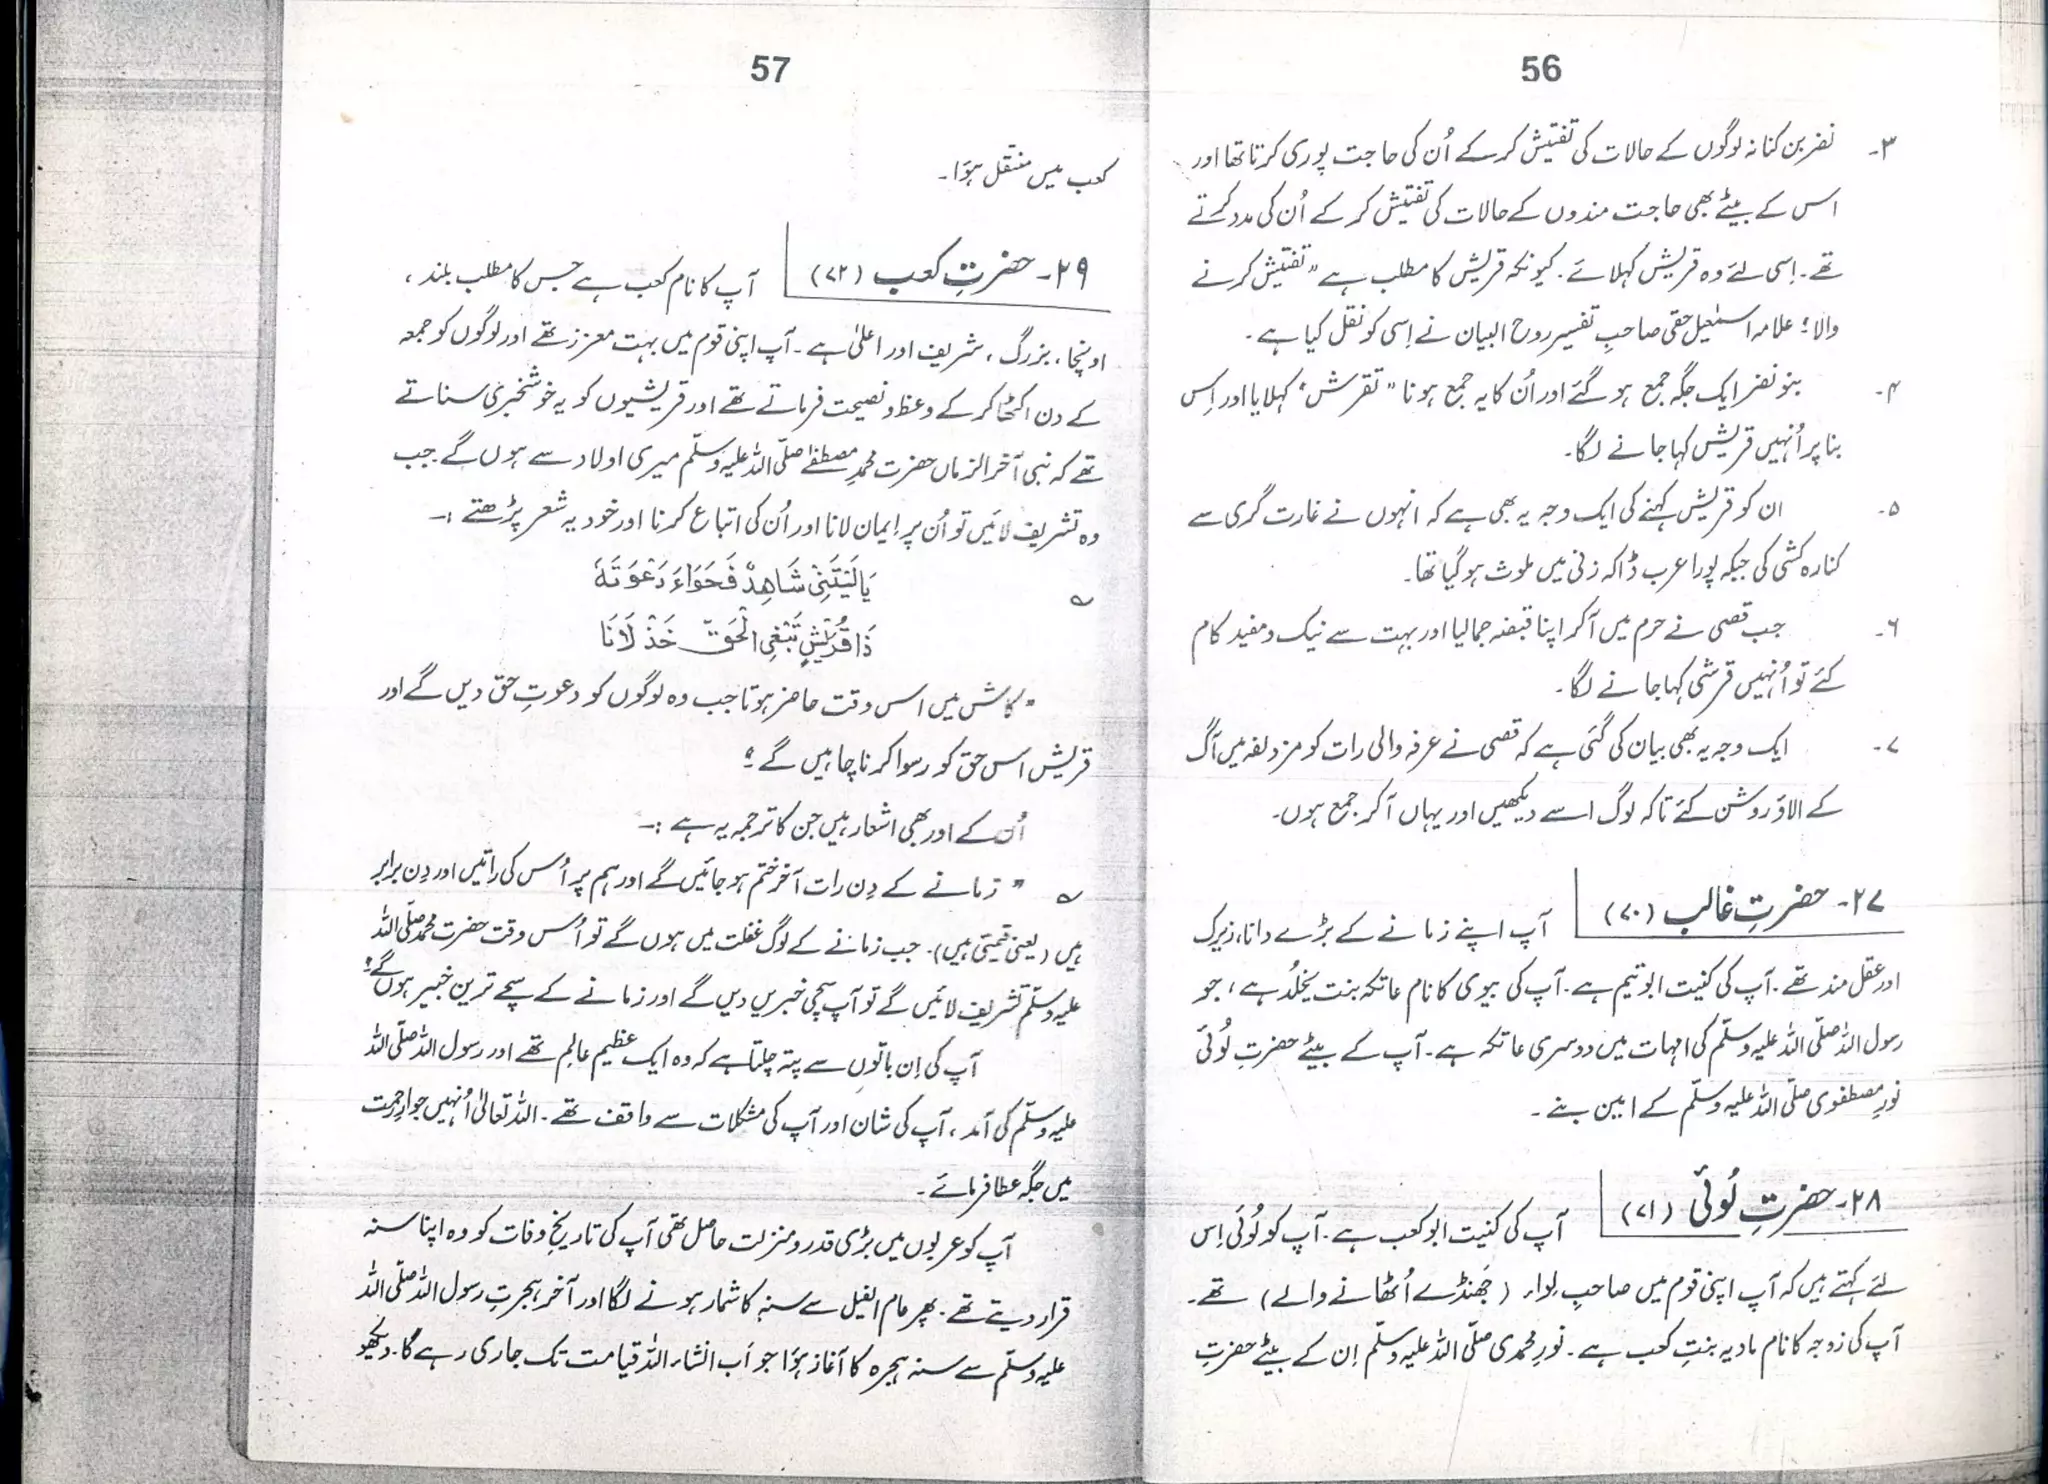 56
۳۔ نضر بن کنانہ لوگوں کے حالات کی تفتیش کر کے اُن کی حاجت پوری کرتا تھا اور
اس کے بیٹے بھی حاجت مندوں کے حالات کی تفتیش کر کے اُن کی مدد کرتے
تھے۔ اِسی لئے وہ قریش کہلائے۔ کیونکہ قریش کا مطلب ہے "تفتیش کرنے
والا" علامہ اسمٰعیل حقی صاحبِ تفسیر روح البیان نے اِسی کو نقل کیا ہے۔
۴۔ بنو نضر ایک جگہ جمع ہو گئے اور اُن کا یہ جمع ہونا "تقرش" کہلایا اور اِس
بنا پر اُنہیں قریش کہا جانے لگا۔
۵۔ ان کو قریش کہنے کی ایک وجہ یہ بھی ہے کہ انہوں نے غارت گری سے
کنارہ کشی کی جبکہ پورا عرب ڈاکہ زنی میں ملوث ہو گیا تھا۔
۶۔ جب قصی نے حرم میں آ کر اپنا قبضہ جما لیا اور بہت سے نیک و مفید کام
کئے تو اُنہیں قرشی کہا جانے لگا۔
۷۔ ایک وجہ یہ بھی بیان کی گئی ہے کہ قصی نے عرفہ والی رات کو مزدلفہ میں آگ
کے الاؤ روشن کئے تاکہ لوگ اسے دیکھیں اور یہاں آ کر جمع ہوں۔
۲۷۔ حضرتِ غالب (۷۰) آپ اپنے زمانے کے بڑے دانا، زیرک
اور عقل مند تھے۔ آپ کی کنیت ابو تیم ہے۔ آپ کی بیوی کا نام عاتکہ بنت یخلُد ہے، جو
رسول اللہ صلّی اللہ علیہ وسلّم کی امہات میں دوسری عاتکہ ہے۔ آپ کے بیٹے حضرتِ لُوئَی
نورِ مصطفوی صلّی اللہ علیہ وسلّم کے امین بنے۔
۲۸۔ حضرتِ لُوئَی (۷۱) آپ کی کنیت ابو کعب ہے۔ آپ کو لُوئَی اِس
لئے کہتے ہیں کہ آپ اپنی قوم میں صاحبِ لِواء (جَھنڈے اُٹھانے والے) تھے۔
آپ کی زوجہ کا نام مادیہ بنتِ کعب ہے۔ نورِ محمدی صلّی اللہ علیہ وسلّم اِن کے بیٹے حضرتِ
57
کعب میں منتقل ہؤا۔
۲۹۔ حضرتِ کعب (۷۲) آپ کا نام کعب ہے جس کا مطلب بلند،
اونچا، بزرگ، شریف اور اعلیٰ ہے۔ آپ اپنی قوم میں بہت معزز تھے اور لوگوں کو جمعہ
کے دن اکٹھا کر کے وعظ و نصیحت فرماتے تھے اور قریشیوں کو یہ خوشخبری سناتے
تھے کہ نبی آخر الزماں حضرت محمدِ مصطفےٰ صلّی اللہ علیہ وسلّم میری اولاد سے ہوں گے۔ جب
وہ تشریف لائیں تو اُن پر اِیمان لانا اور اُن کی اتباع کرنا اور خود یہ شعر پڑھتے :۔
یَا لَیْتَنِیْ شَاھِدْ فَحَوَاءَ دَعْوَتَہٗ
ذَا قُرَیْشٍ تَبْغِی الْحَقَّ خَذْلَانَا
"کاش میں اس وقت حاضر ہوتا جب وہ لوگوں کو دعوتِ حق دیں گے اور
قریش اس حق کو رسوا کرنا چاہیں گے"
اُن کے اور بھی اشعار ہیں جن کا ترجمہ یہ ہے :۔
"زمانے کے دِن رات آخر ختم ہو جائیں گے اور ہم پر اُس کی راتیں اور دِن برابر
ہیں (یعنی قیمتی ہیں)۔ جب زمانے کے لوگ غفلت میں ہوں گے تو اُس وقت حضرت محمد صلّی اللہ
علیہ وسلّم تشریف لائیں گے تو آپ سچی خبریں دیں گے اور زمانے کے سچے ترین خبیر ہوں گے"
آپ کی اِن باتوں سے پتہ چلتا ہے کہ وہ ایک عظیم عالِم تھے اور رسول اللہ صلّی اللہ
علیہ وسلّم کی آمد، آپ کی شان اور آپ کی مشکلات سے واقف تھے۔ اللہ تعالیٰ اُنہیں جوارِ رحمت
میں جگہ عطا فرمائے۔
آپ کو عربوں میں بڑی قدر و منزلت حاصل تھی آپ کی تاریخِ وفات کو وہ اپنا سنہ
قرار دیتے تھے۔ پھر عام الفیل سے سنہ کا شمار ہونے لگا اور آخر ہجرتِ رسول اللہ صلّی اللہ
علیہ وسلّم سے سنہ ہجرہ کا آغاز ہؤا جو اَب انشاء اللہ قیامت تک جاری رہے گا۔ دیکھو